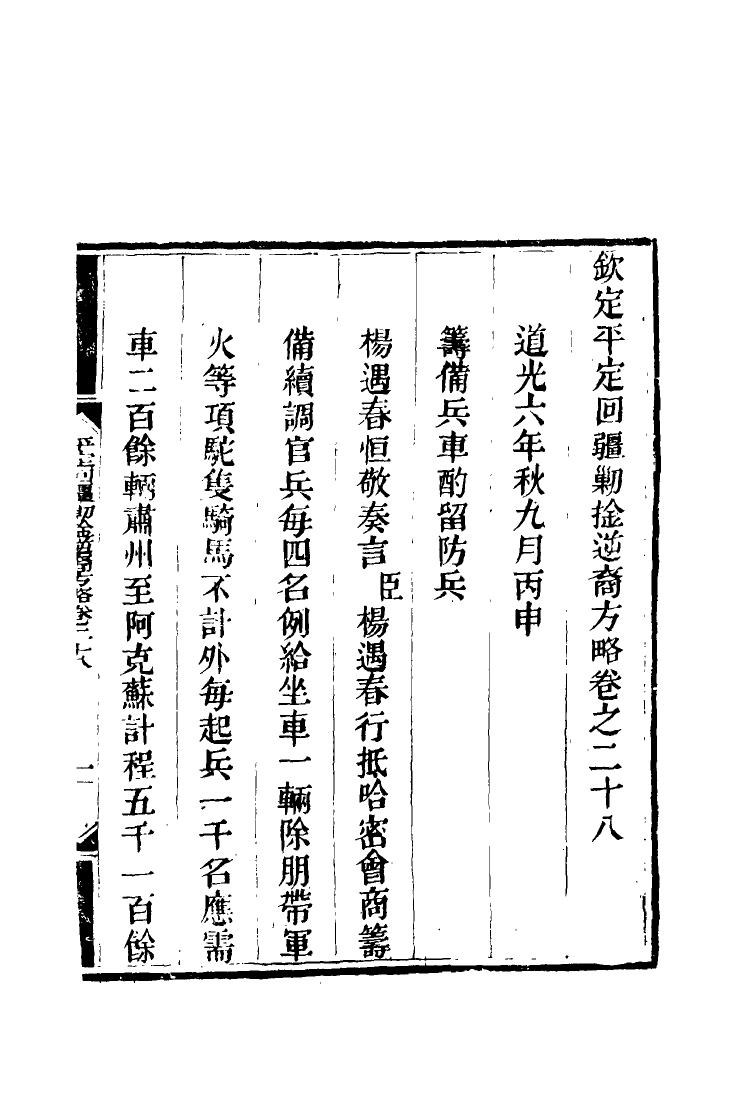 欽定平定回疆剿捦逆裔方略卷之二十八
道光六年秋九月丙申
籌備兵車酌留防兵
楊遇春恒敬奏言臣楊遇春行抵哈密會商籌
備續調官兵每四名例給坐車一輛除朋帶軍
火等項駝隻騎馬不計外每起兵一千名應需
車二百餘輛肅州至阿克蘇計程五千一百餘